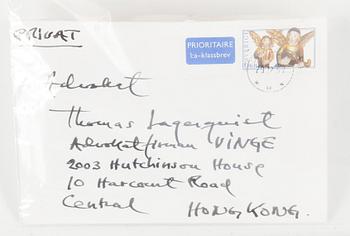 PRIVAT
PRIORITAIRE
1:a-klassbrev
SVERIGE
Advokat
Thomas Lagerquist
Advokatfirman VINGE
2003 Hutchinson House
10 Harcourt Road
Central HONG KONG.